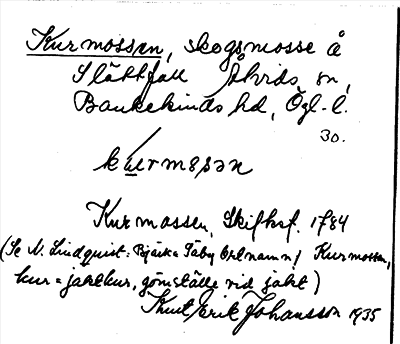 Kurmossen, skogsmosse å
Slättfall Åtvids sn,
Bankekinds hd, Ögl. l.
30.
Kurmossen, Skifksf. 1784
(Se N. Lindquist: Bjärka Säby Ortnamn, Kurmossen,
kur = jaktkur, gömställe vid jakt)
Knut Erik Johansson 1935